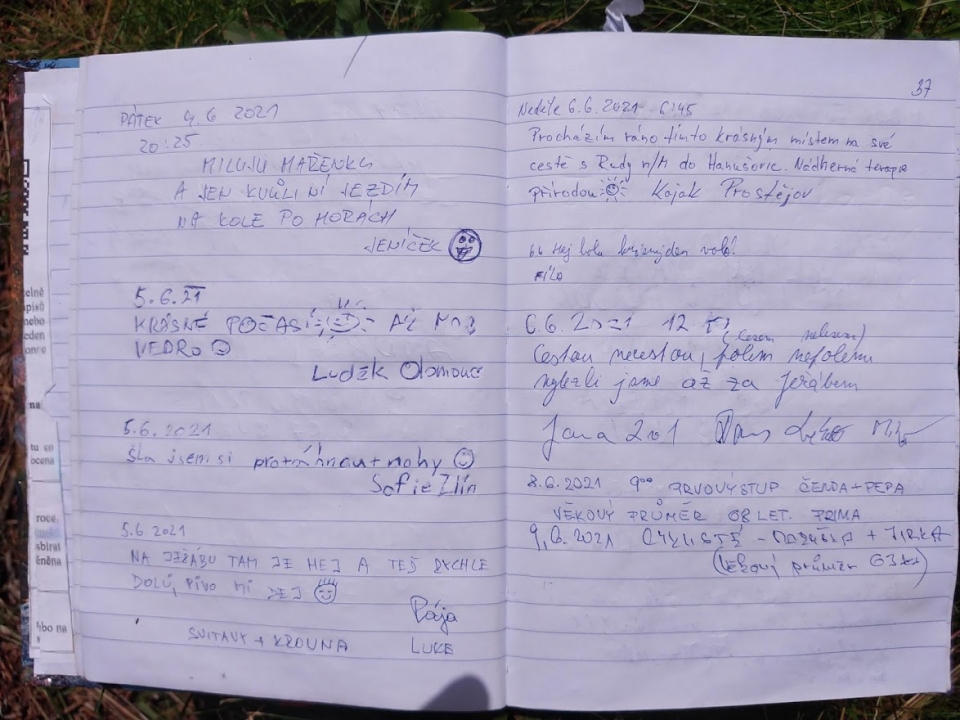 PÁTEK 4.6 2021
20:25
MILUJU MAŘENKU
A JEN KVŮLI NÍ JEZDÍM
NA KOLE PO HORÁCH
JENÍČEK
5.6.21
KRÁSNÉ POČASÍ AŽ MOC
VEDRO
Luděk Olomouc
5.6.2021
Šla jsem si protáhnout nohy
Sofie Zlín
5.6 2021
NA JEŘÁBU TAM JE HEJ A TEĎ RYCHLE
DOLŮ, PIVO MI DEJ
Pája
SVITAVY + KROUNA LUKE
37
Neděle 6.6.2021 6:45
Procházím ráno tímto krásným místem na své
cestě s Rudy n/M do Hanušovic. Nádherná terapie
přírodou Kojak Prostějov
6.6 Hej
Fílo
6.6.2021 12
(lesem nelesem)
Cestou necestou, polem nepolem
vylezli jsme až za Jeřábem
Jana
8.6.2021 900 PRVOVÝSTUP ČENDA + PEPA
VĚKOVÝ PRŮMĚR 68 LET. PRIMA
9.6.2021 CYKLISTÉ - + JIRKA
(věkový průměr 63 let)